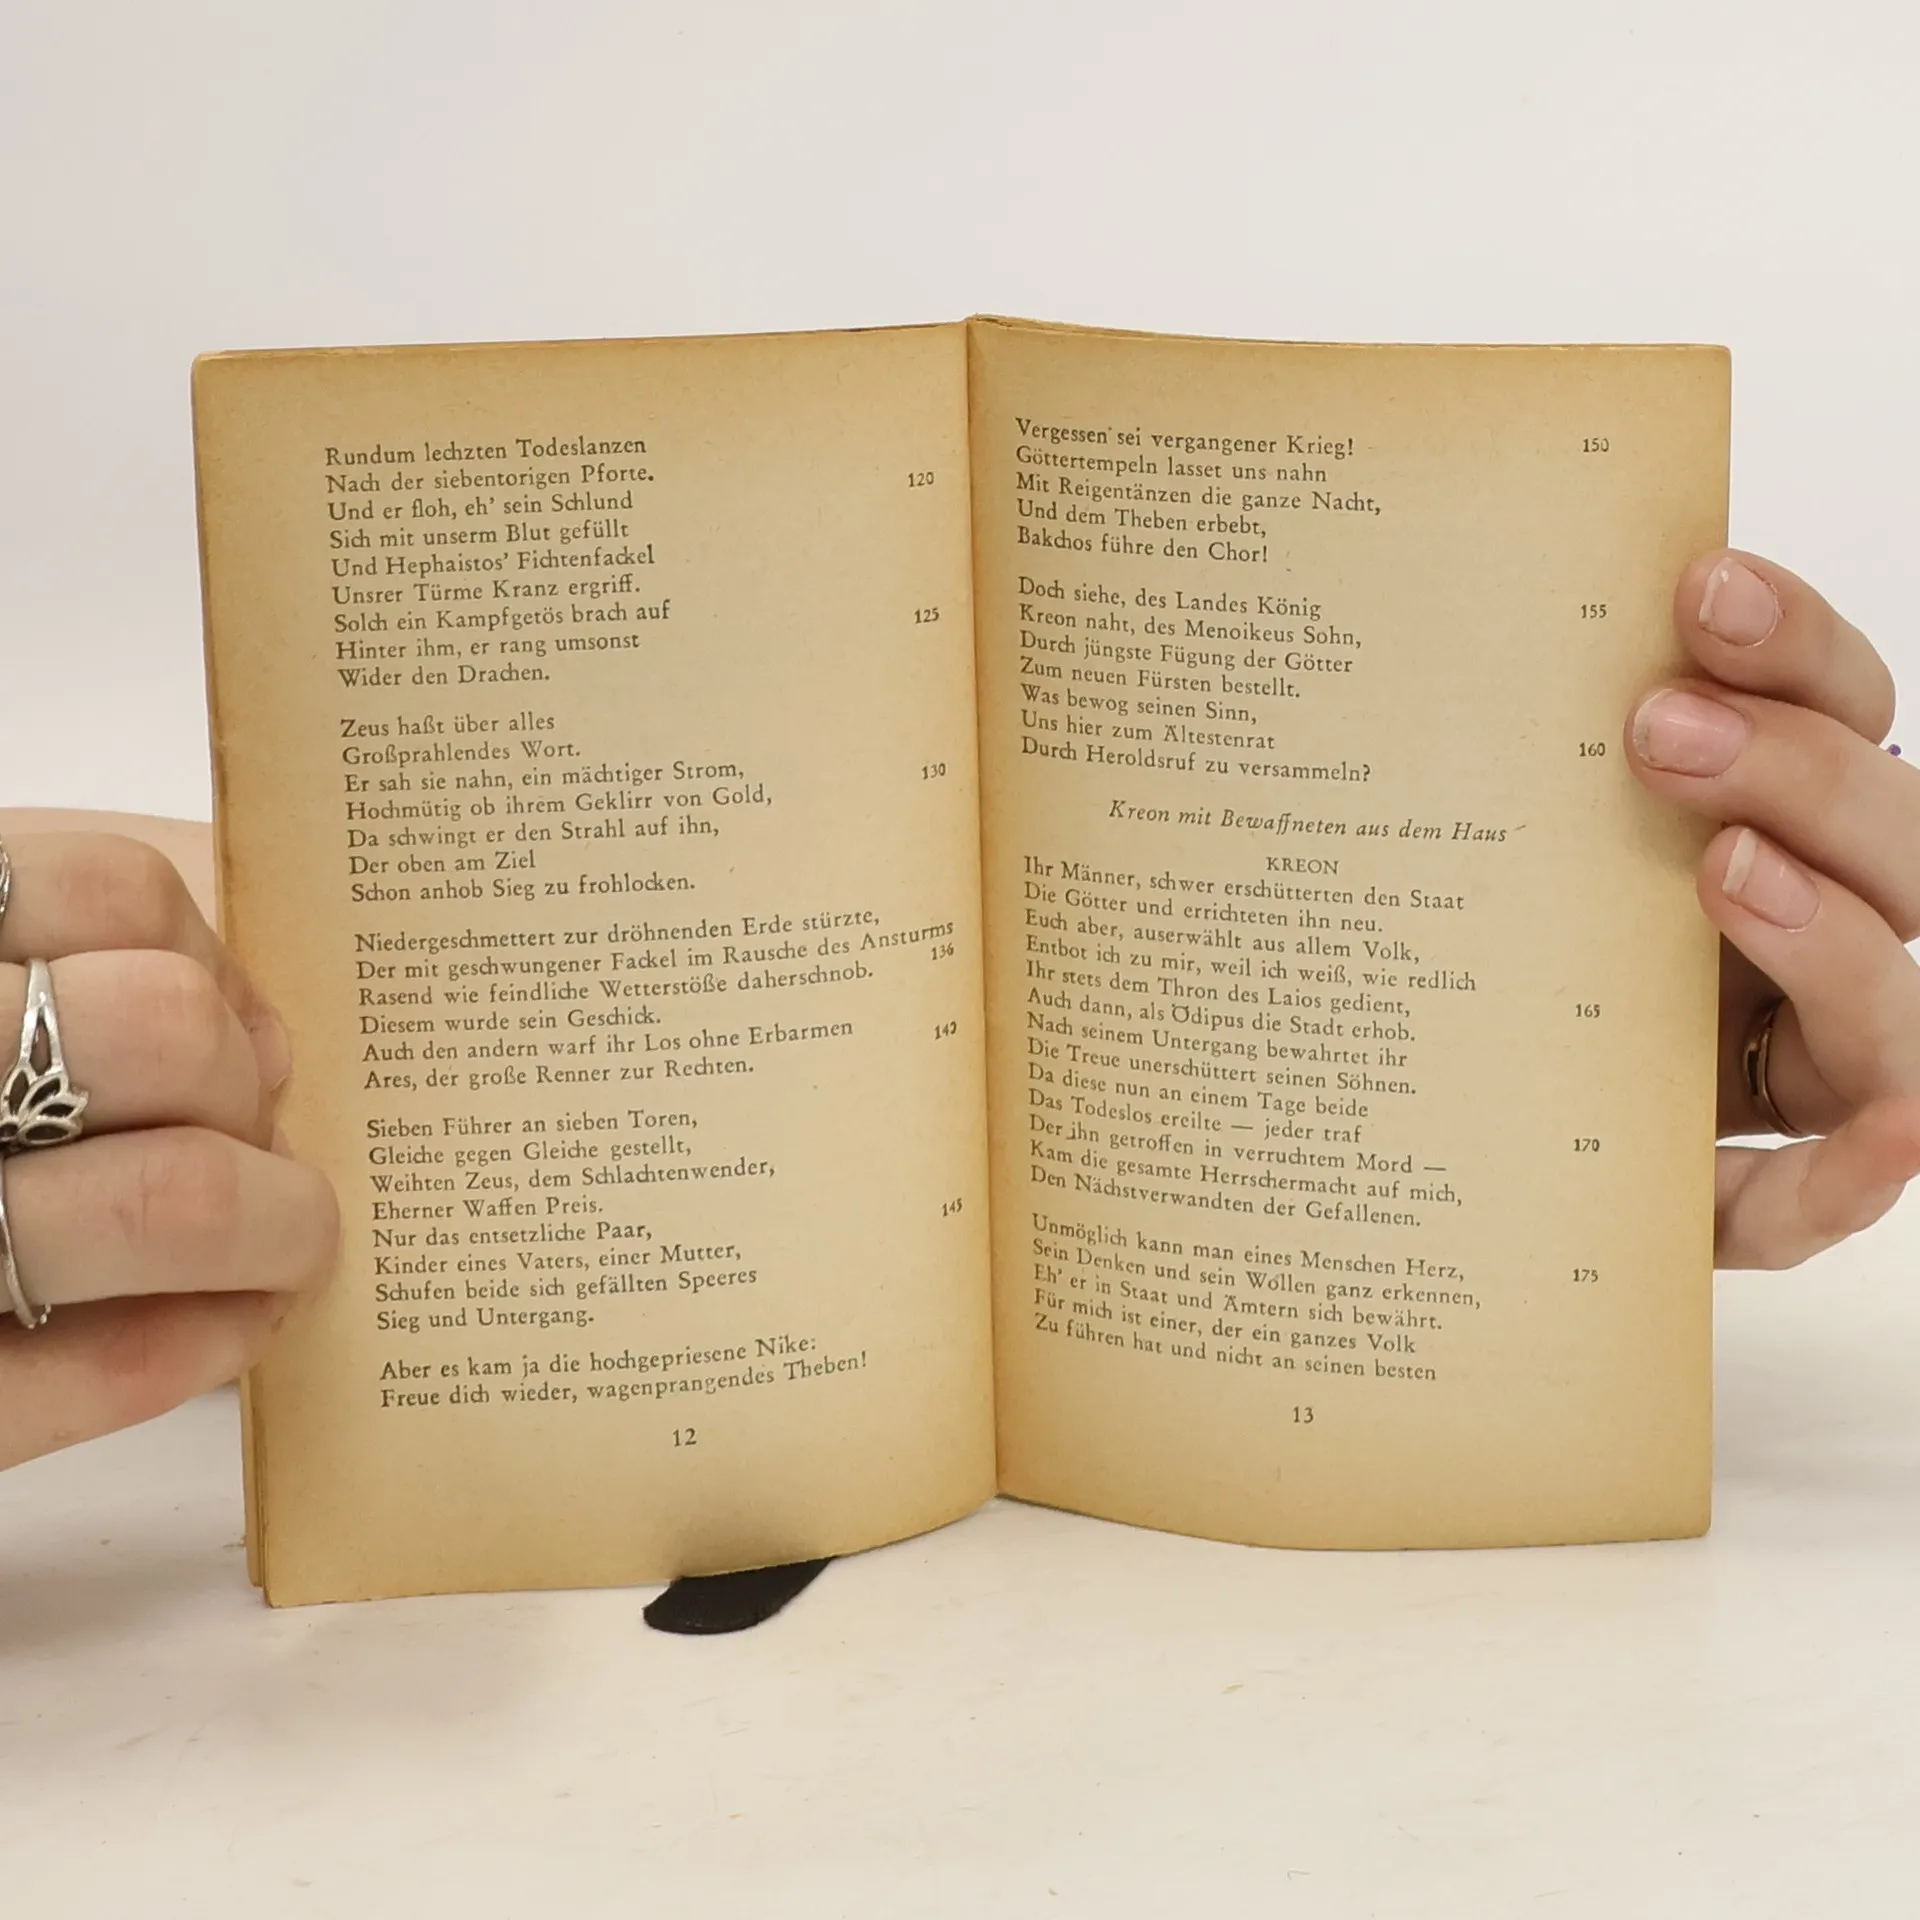 Rundum lechzten Todeslanzen
Nach der siebentorigen Pforte. 120
Und er floh, eh' sein Schlund
Sich mit unserm Blut gefüllt
Und Hephaistos' Fichtenfackel
Unsrer Türme Kranz ergriff.
Solch ein Kampfgetös brach auf 125
Hinter ihm, er rang umsonst
Wider den Drachen.
Zeus haßt über alles
Großprahlendes Wort.
Er sah sie nahn, ein mächtiger Strom, 130
Hochmütig ob ihrem Geklirr von Gold,
Da schwingt er den Strahl auf ihn,
Der oben am Ziel
Schon anhob Sieg zu frohlocken.
Niedergeschmettert zur dröhnenden Erde stürzte,
Der mit geschwungener Fackel im Rausche des Ansturms
Rasend wie feindliche Wetterstöße daherschnob. 136
Diesem wurde sein Geschick.
Auch den andern warf ihr Los ohne Erbarmen 140
Ares, der große Renner zur Rechten.
Sieben Führer an sieben Toren,
Gleiche gegen Gleiche gestellt,
Weihten Zeus, dem Schlachtenwender,
Eherner Waffen Preis.
Nur das entsetzliche Paar, 145
Kinder eines Vaters, einer Mutter,
Schufen beide sich gefällten Speeres
Sieg und Untergang.
Aber es kam ja die hochgepriesene Nike:
Freue dich wieder, wagenprangendes Theben!
12
Vergessen sei vergangener Krieg! 150
Göttertempeln lasset uns nahn
Mit Reigentänzen die ganze Nacht,
Und dem Theben erbebt,
Bakchos führe den Chor!
Doch siehe, des Landes König 155
Kreon naht, des Menoikeus Sohn,
Durch jüngste Fügung der Götter
Zum neuen Fürsten bestellt.
Was bewog seinen Sinn,
Uns hier zum Ältestenrat 160
Durch Heroldsruf zu versammeln?
Kreon mit Bewaffneten aus dem Haus
KREON
Ihr Männer, schwer erschütterten den Staat
Die Götter und errichteten ihn neu.
Euch aber, auserwählt aus allem Volk,
Entbot ich zu mir, weil ich weiß, wie redlich
Ihr stets dem Thron des Laios gedient, 165
Auch dann, als Ödipus die Stadt erhob.
Nach seinem Untergang bewahrtet ihr
Die Treue unerschüttert seinen Söhnen.
Da diese nun an einem Tage beide
Das Todeslos ereilte — jeder traf
Der ihn getroffen in verruchtem Mord — 170
Kam die gesamte Herrschermacht auf mich,
Den Nächstverwandten der Gefallenen.
Unmöglich kann man eines Menschen Herz,
Sein Denken und sein Wollen ganz erkennen, 175
Eh' er in Staat und Ämtern sich bewährt.
Für mich ist einer, der ein ganzes Volk
Zu führen hat und nicht an seinen besten
13